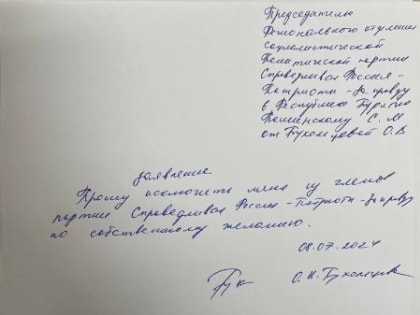 Председателю
Регионального отделения
социалистической
Политической партии
Справедливая Россия -
Патриоты - За правду
в Республике Бурятия
С. М
от Бухольцевой О. В
заявление
Прошу исключить меня из членов
партии Справедливая Россия - Патриоты - За правду
по собственному желанию.
08.07.2024
Бух